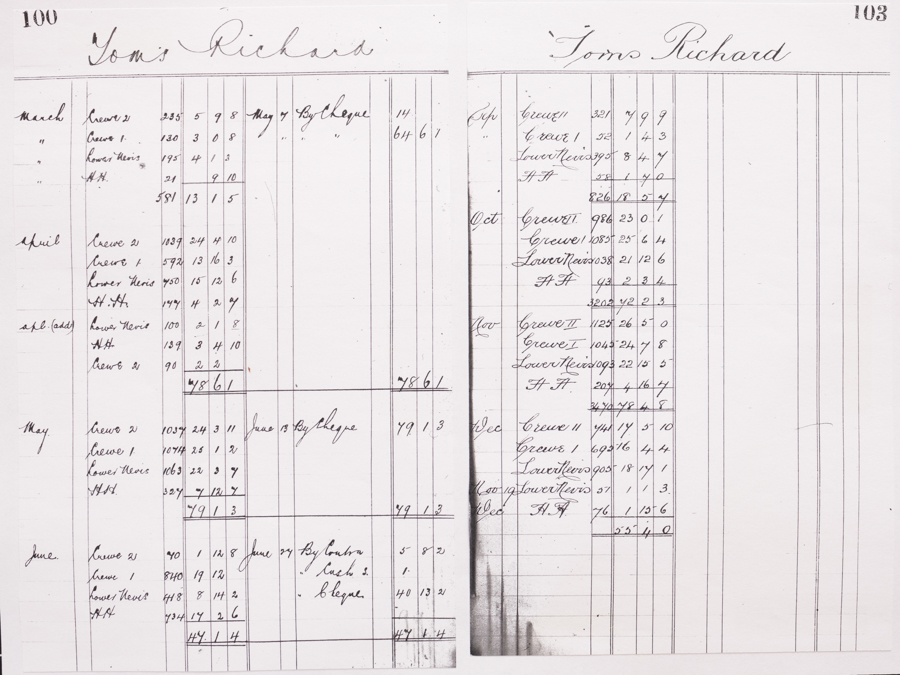 100
Toms Richard
March Crewe 2 235 5 9 8 May 7 By Cheque 14
" Crewe 1 130 3 0 8 " " " 64 6 1
" Lower Nevis 195 4 1 3
" H.H. 21 9 10
581 13 1 5
April Crewe 2 1039 24 4 10
Crewe 1 592 13 16 3
Lower Nevis 750 15 12 6
H.H. 177 4 2 7
apl. (add) Lower Nevis 100 2 1 8
HH 139 3 4 10
Crewe 2 90 2 2
78 6 1 78 6 1
May Crewe 2 1037 24 3 11 June 13 By Cheque 79 1 3
Crewe 1 1074 25 1 2
Lower Nevis 1063 22 3 7
H.H. 327 7 12 7
79 1 3 79 1 3
June Crewe 2 70 1 12 8 June 27 By Contra 5 8 2
Crewe 1 840 19 12 " Cash 1
Lower Nevis 418 8 14 2 " Cheque 40 13 2
HH 734 17 2 6
47 1 4 47 1 4
103
Toms Richard
Sep Crewe II 321 7 9 9
" Crewe I 52 1 4 3
Lower Nevis 395 8 4 7
HH 58 1 7 0
826 18 5 7
Oct Crewe II 986 23 0 1
Crewe I 1085 25 6 4
Lower Nevis 1038 21 12 6
HH 93 2 3 4
3202 72 2 3
Nov Crewe II 1125 26 5 0
Crewe I 1045 24 7 8
Lower Nevis 1093 22 15 5
HH 207 4 16 7
3470 78 4 8
Dec Crewe II 741 17 5 10
Crewe I 695 16 4 4
Lower Nevis 905 18 17 1
Nov 19 Lower Nevis 51 1 1 3
Dec HH 76 1 15 6
55 4 0